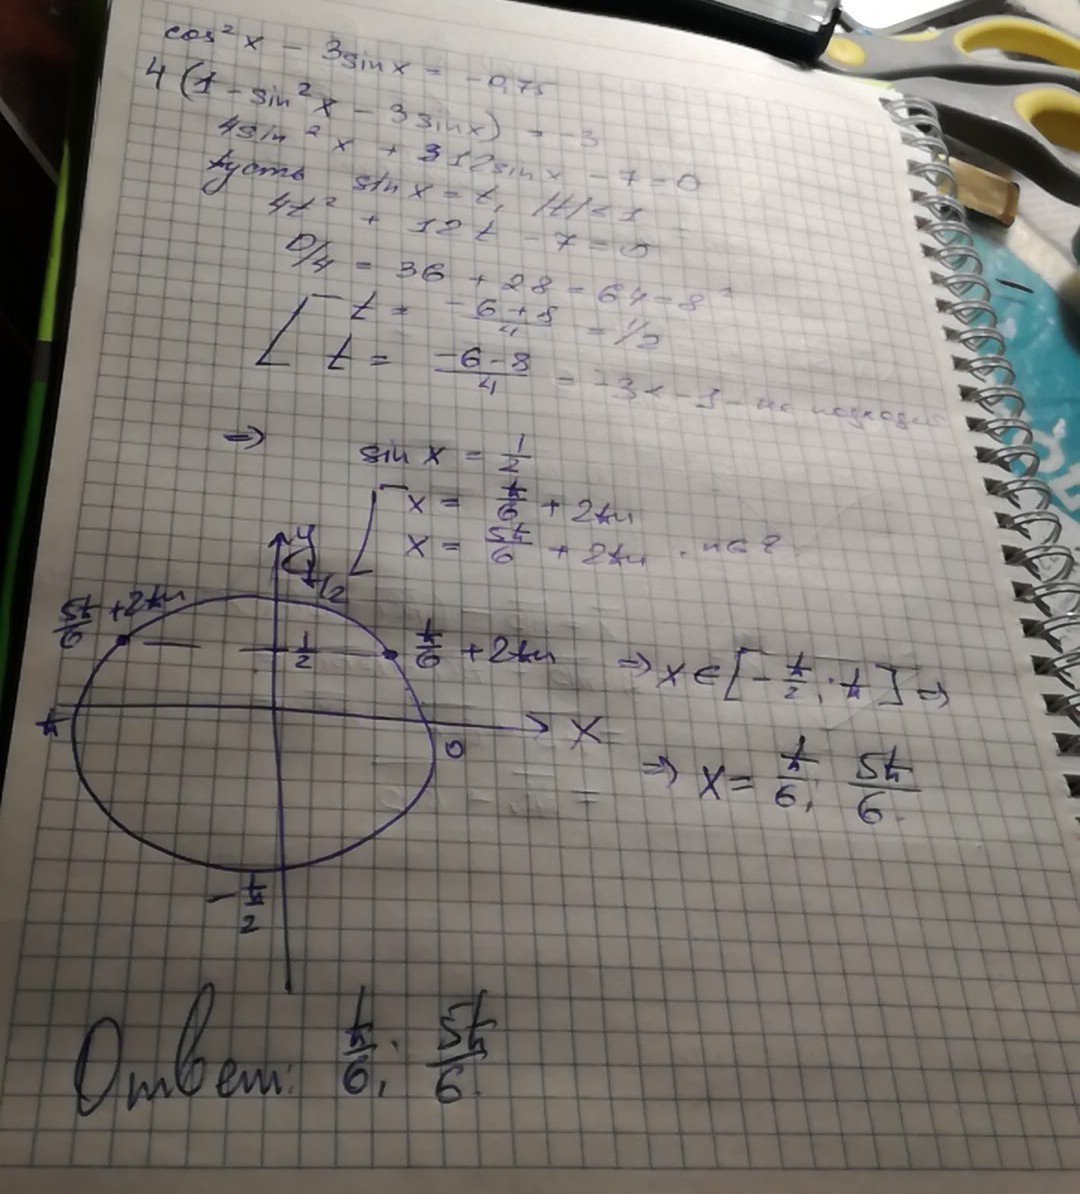 cos²x - 3sinx = -0,75
4(1 - sin²x - 3sinx) = -3
4sin²x + 12sinx - 7 = 0
пусть sinx = t, |t| ≤ 1
4t² + 12t - 7 = 0
D/4 = 36 + 28 = 64 = 8²
t = (-6+8)/4 = 1/2
t = (-6-8)/4 = -3 < -1 - не подходит
⇒ sin x = 1/2
x = π/6 + 2πn
x = 5π/6 + 2πn, n∈Z
y
π/2
5π/6 + 2πn
1/2
π/6 + 2πn
⇒ x ∈ [-π/2; π] ⇒
π
0
X
⇒ x = π/6; 5π/6.
-π/2
Ответ: π/6; 5π/6.